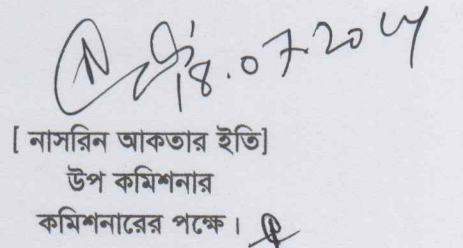 18.07.20
[ নাসরিন আকতার ইতি]
উপ কমিশনার
কমিশনারের পক্ষে।